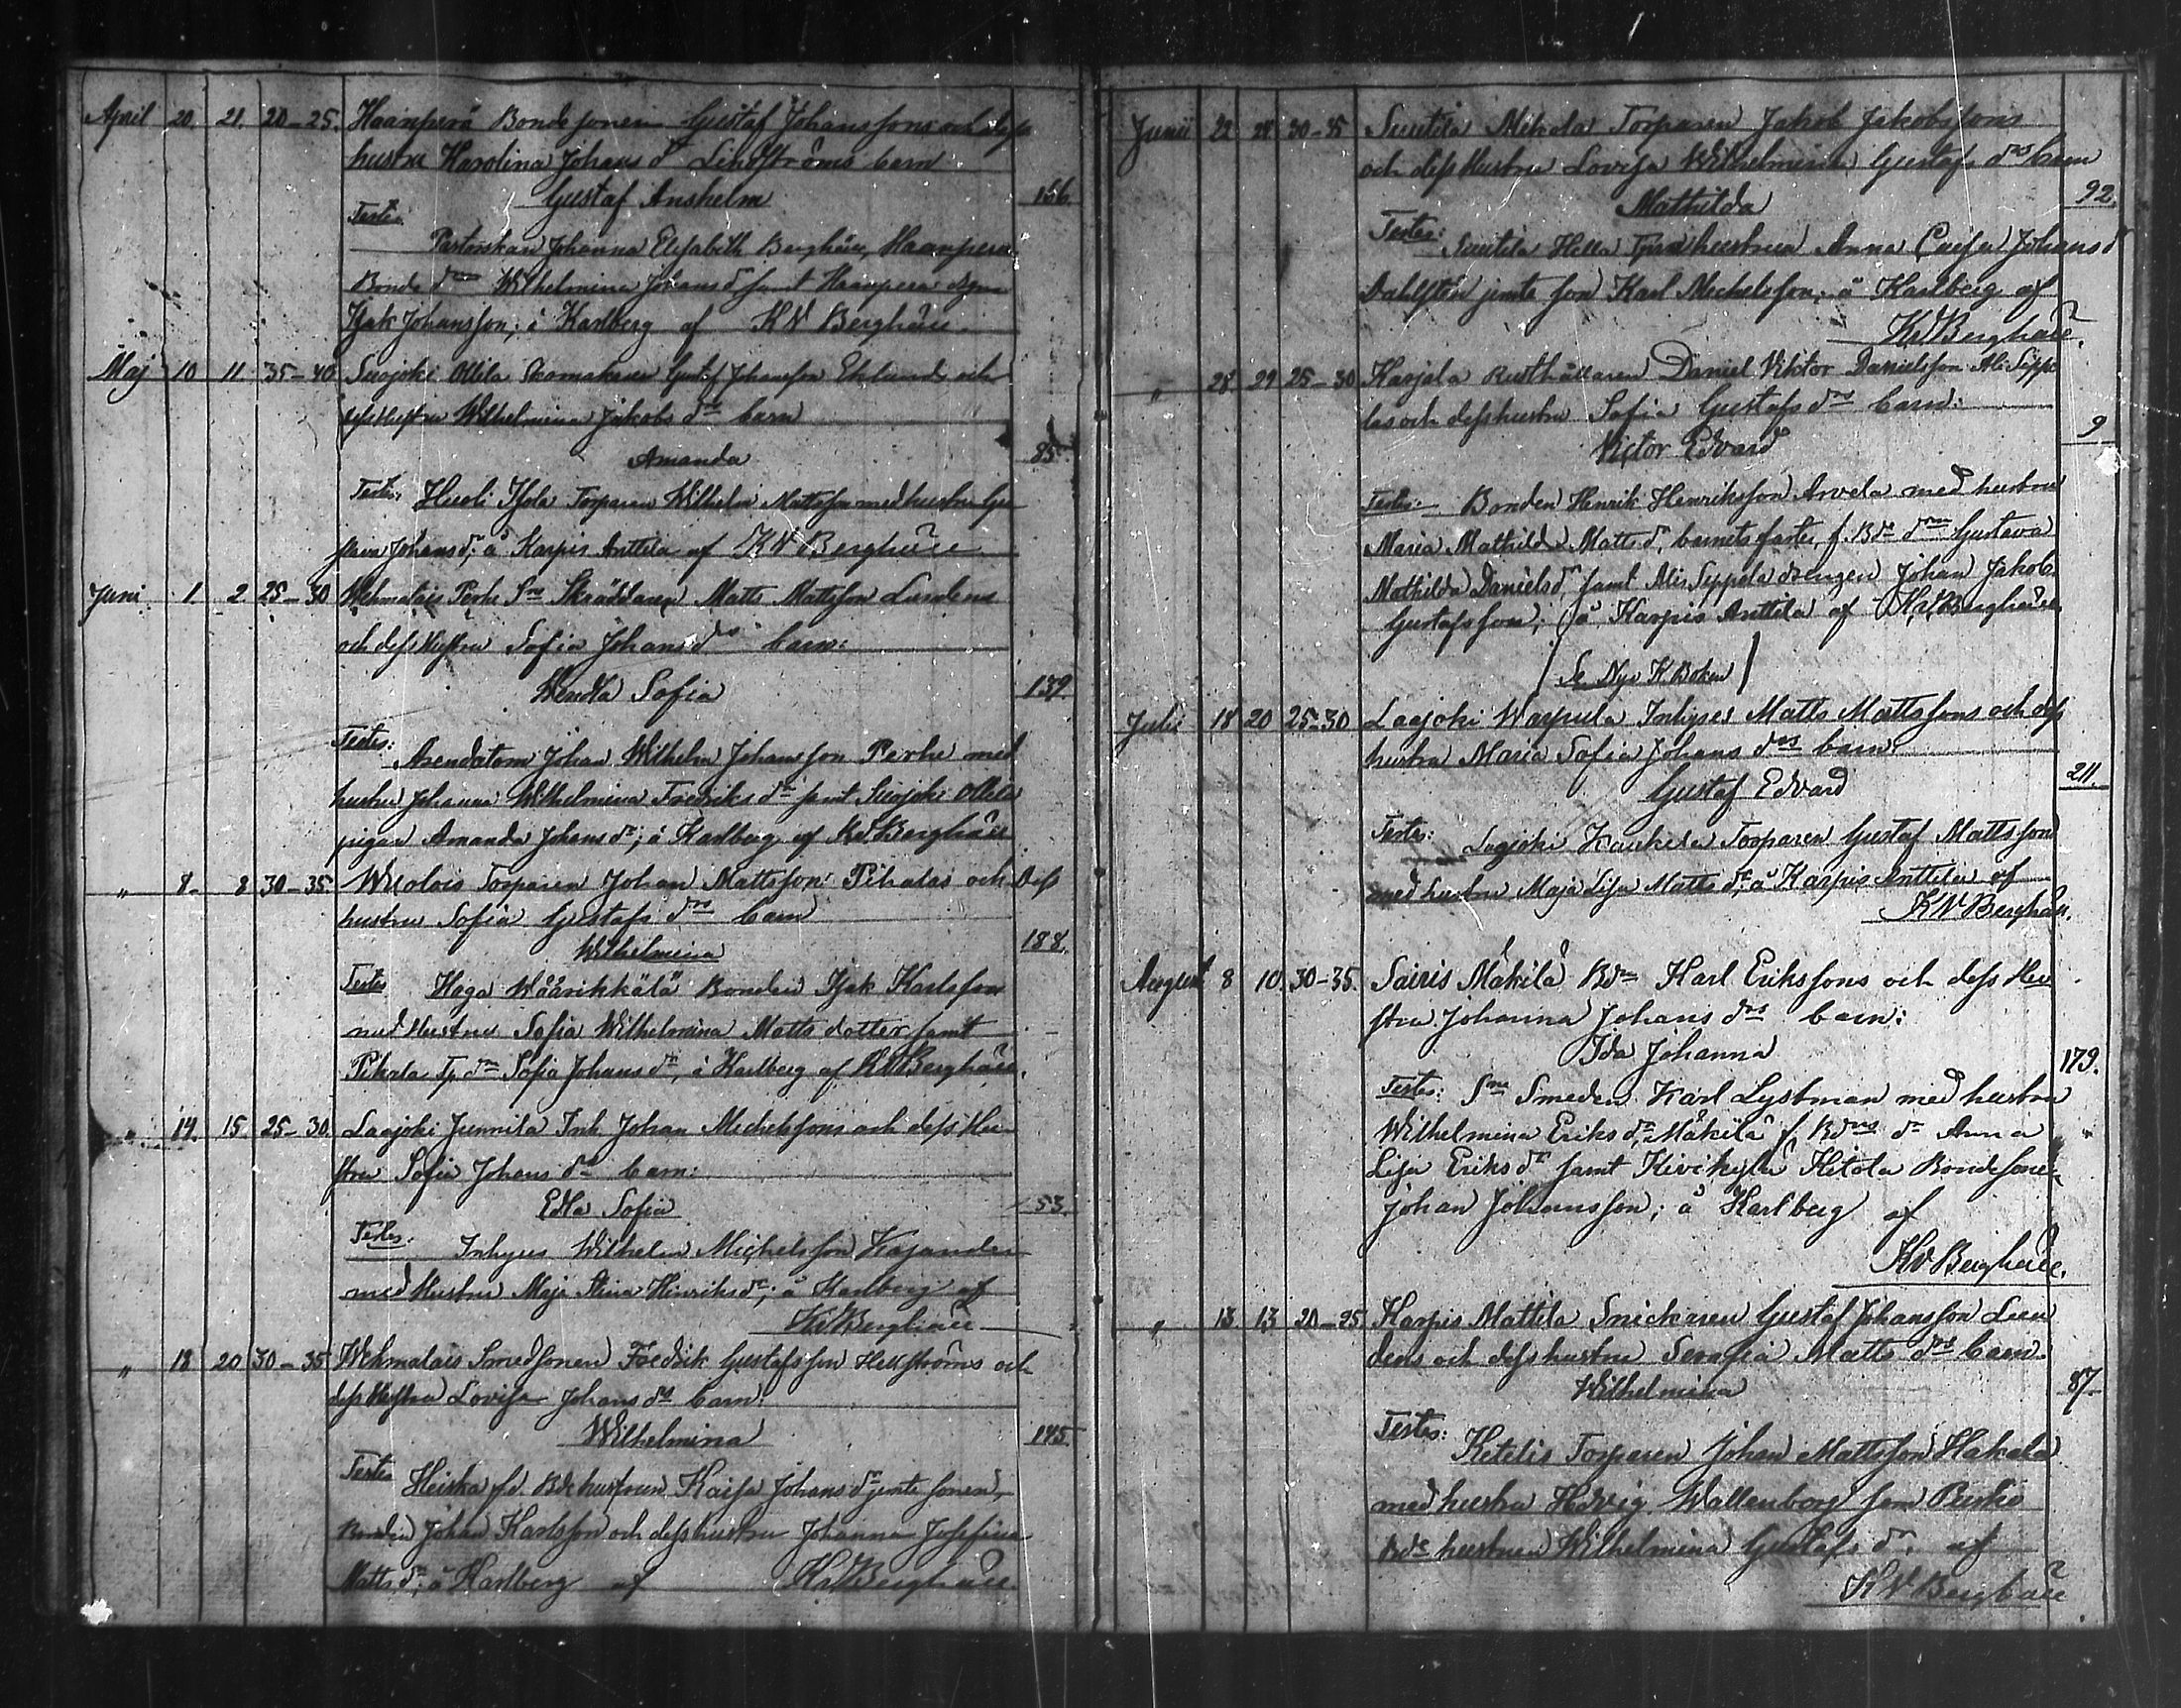 April 20. 21. 20-25. Haanperä Bondesonen Gustaf Johanssons och dess
hustru Karolina Johans dr Lindströms barn
Gustaf Anshelm 166
Testes:
Pastorskan Johanna Elisabeth Berghäll, Haanperä
Bonde drn Wilhelmina Johans dr samt Haanperä
Isak Johansson; å Karlberg af KW Berghäll
Maj 10 11 35-40 Suojoki Ollila Skomakaren Gustaf Johansson Eklunds och
dess Hustru Wilhelmina Jakobs drs barn
Amanda 85
Testes: Huoli Isola Torparen Wilhelm Mattsson med hustru Gu
stava Johans dr; å Karpis Anttila af KW Berghäll
Juni 1. 2 25-30 Wehmalais Perhe Sne Skräddaren Matts Mattsson Lindens
och dess Hustru Sofia Johans drs barn:
Wendla Sofia 139.
Testes:
Arendatorn Johan Wilhelm Johansson Perhe med
hustru Johanna Wilhelmina Fredriks dr samt Suojoki Ollila
pigan Amanda Johans dr; å Karlberg af KW Berghäll
" 8. 8 30-35 Torparen Johan Mattsson Pihalas och dess
hustru Sofia Gustafs drs barn
Wilhelmina 188.
Testes Haga Wäärikkälä Bonden Isak Karlsson
med Hustru Sofia Wilhelmina Matts dotter samt
Pihala Tp drn Sofia Johans dr, å Karlberg af KW Berghäll.
" 14. 15. 25-30 Laajoki Junnila Inh. Johan Michelssons och dess Hu
stru Sofia Johans drs barn:
Edla Sofia 53.
Testes:
Inhyses Wilhelm Michelsson Kajander
med Hustru Maja Stina Hinriks dr; å Karlberg af
KW Berghäll
" 18 20 30-35 Wehmalais Smedsonen Fredrik Gustafsson Hellströms och
dess Hustru Lovisa Johans drs barn:
Wilhelmina 145.
Testes Heiska fd. Bde hustrun Kaisa Johans dr jemte sonen,
Bonden Johan Karlsson och dess hustru Johanna Josefina
Matts dr; å Karlberg af KW Berghäll.
Junii 22 24 30-35 Suutila Mikola Torparen Jakob Jakobssons
och dess Hustru Lovisa Wilhelmina Gustafs drs barn
Mathilda 92.
Testes:
Suutila Hella hustrun Anna Caisa Johans dr
Dahlsten jemte son Karl Michelsson; å Karlberg af
KW Berghäll.
" 28. 29 25-30 Karjala Rusthållaren Daniel Viktor Danielsson Ali Seppä
läs och dess hustru Sofia Gustafs drs barn:
Victor Edvard 9
Testes: Bonden Henrik Henriksson Arvela med hustru
Maria Mathilda Matts dr, barnets faster, f. Bde drn Gustava
Mathilda Daniels dr, samt Ali Seppälä drengen Johan Jakob
Gustafsson; å Karpis Anttila af KW Berghäll
(Se Nya K. Boken)
Julii 18 20 25-30 Laajoki Warpula Inhyses Matts Mattssons och dess
hustru Maria Sofia Johans drs barn:
Gustaf Edvard 211.
Testes:
Laajoki Kaukola Torparen Gustaf Mattsson
med hustru Maja Lisa Matts dr; å Karpis Anttila af
KW Berghäll.
August 8 10. 30-35. Sairis Mäkilä Bdn Karl Erikssons och dess Hu
stru Johanna Johans drs barn:
Ida Johanna 179.
Testes: Sne Smeden Karl Lystman med hustru
Wilhelmina Eriks dr, Mäkilä f. Bdns dr Anna
Lisa Eriks dr samt Kivikylä Ketola Bondesonen
Johan Johansson; å Karlberg af
KW Berghäll.
" 13 13 20-25 Karpis Mattila Snickaren Gustaf Johansson Lin
dens och dess hustru Serafia Matts drs barn:
Wilhelmina 87.
Testes:
Ketelis Torparen Johan Mattsson Hakala
med hustru Hedvig Wallenborg samt
Bde hustrun Wilhelmina Gustafs dr. af
KW Berghäll